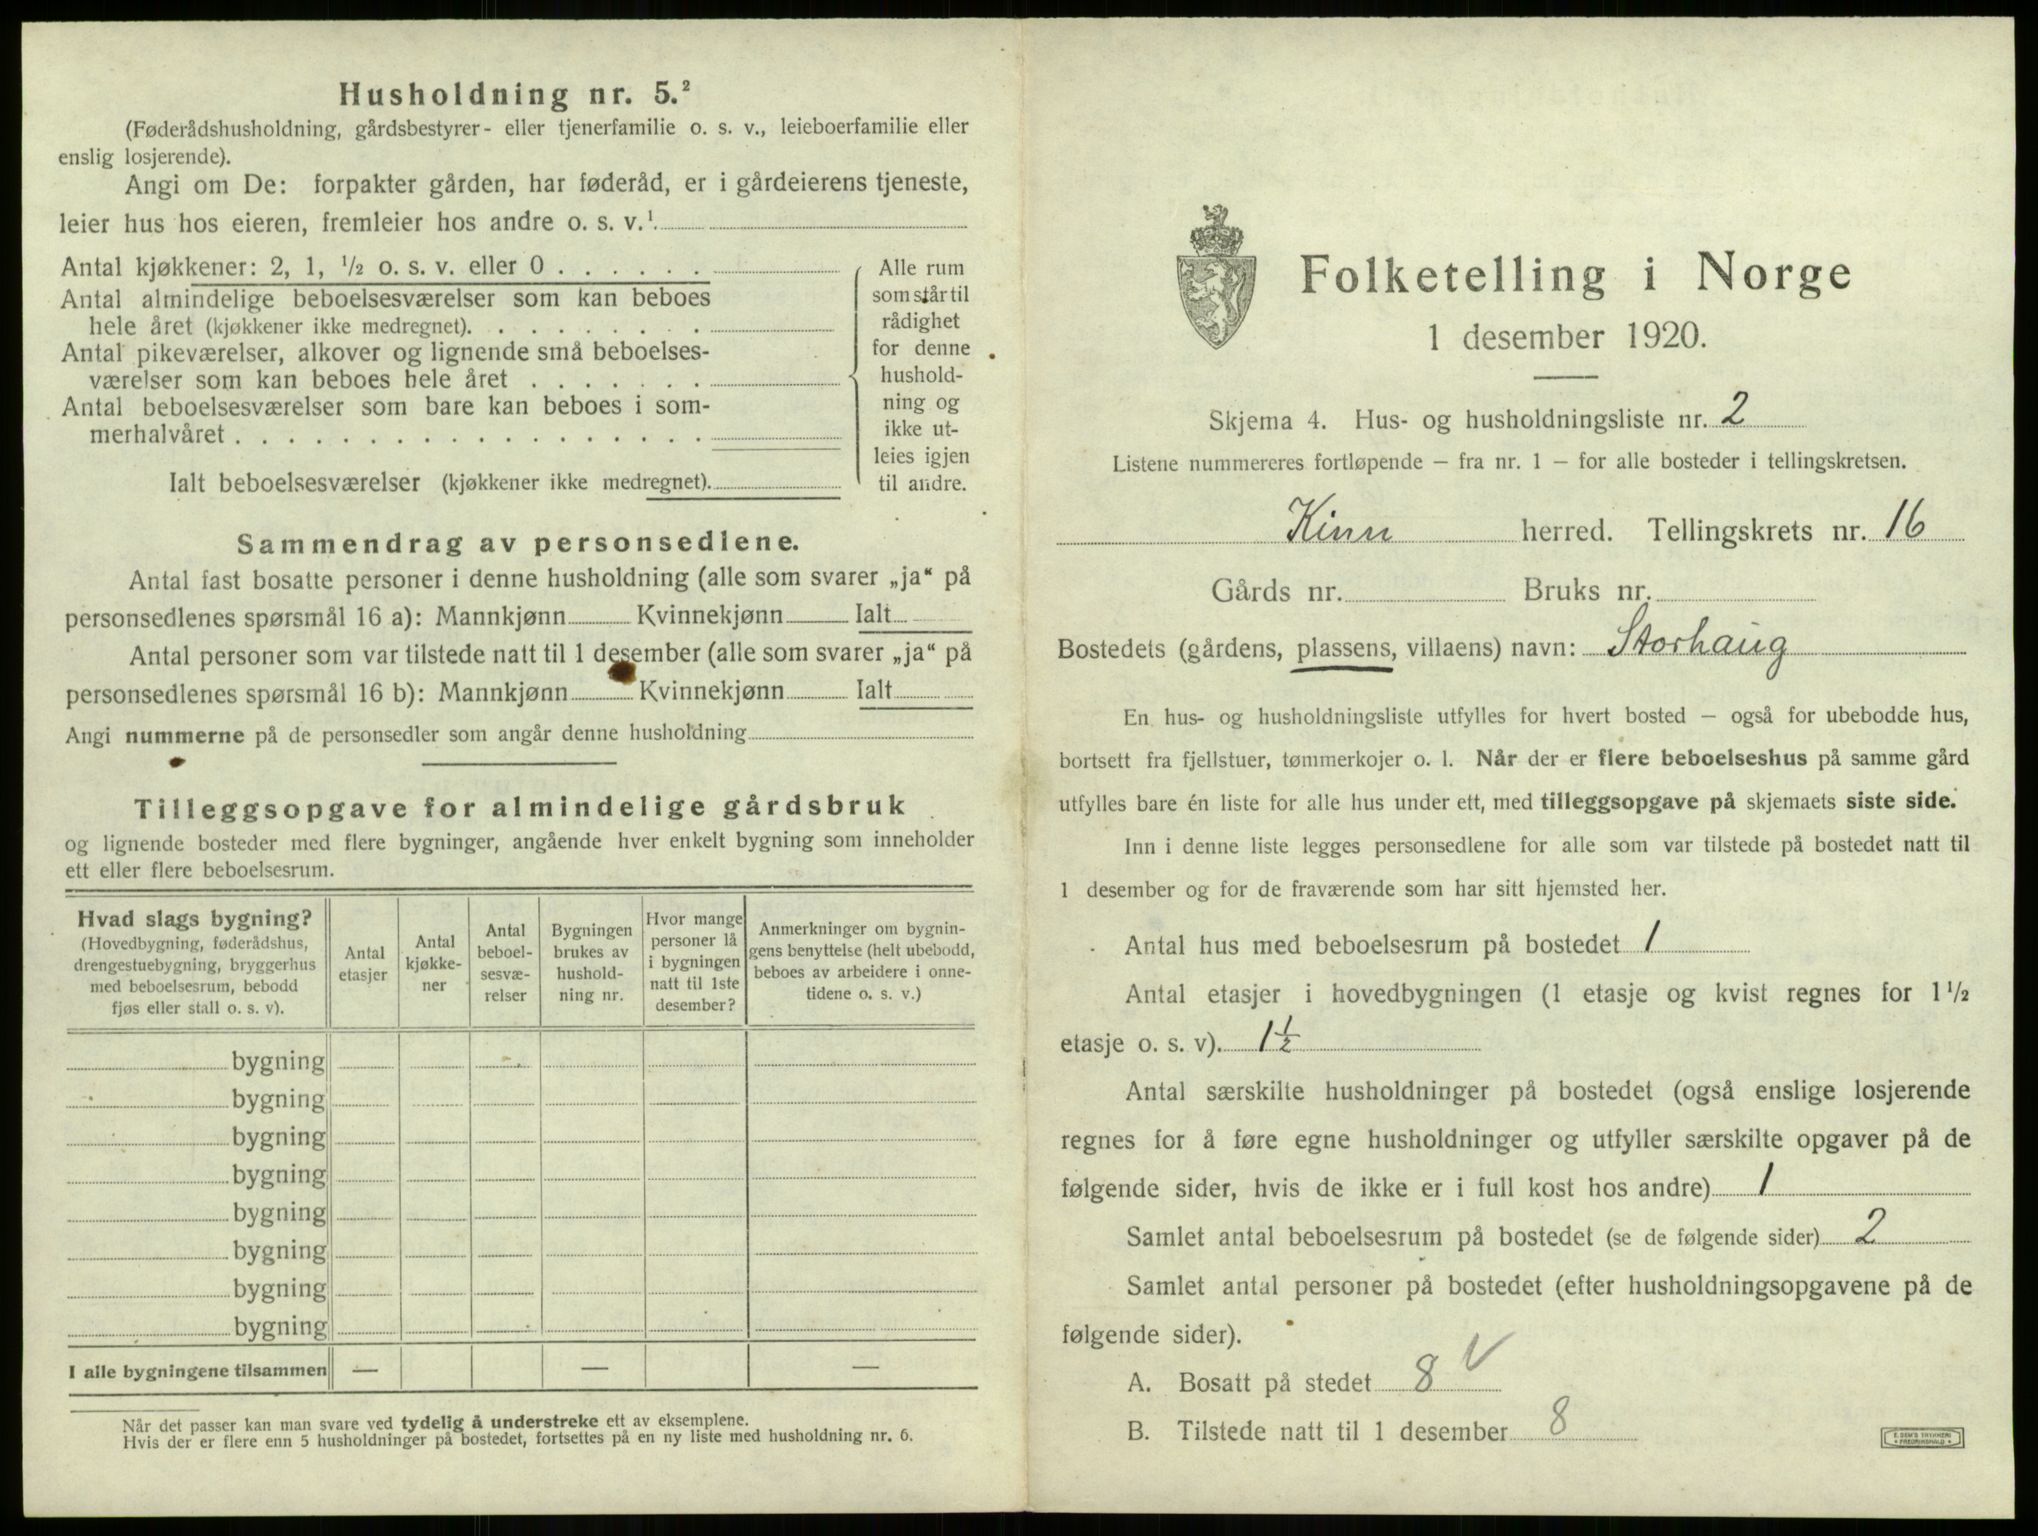 Husholdning nr. 5.²
(Føderådshusholdning, gårdsbestyrer- eller tjenerfamilie o. s. v., leieboerfamilie eller
enslig losjerende).
Angi om De: forpakter gården, har føderåd, er i gårdeierens tjeneste,
leier hus hos eieren, fremleier hos andre o. s. v.¹
Antal kjøkkener: 2, 1, ½ o. s. v. eller 0 . . . . . .
Antal almindelige beboelsesværelser som kan beboes
hele året (kjøkkener ikke medregnet). . . . . . . . .
Antal pikeværelser, alkover og lignende små beboelses-
værelser som kan beboes hele året . . . . . . .
Antal beboelsesværelser som bare kan beboes i som-
merhalvåret . . . . . . . . . . . . . . . . . .
Ialt beboelsesværelser (kjøkkener ikke medregnet).
Alle rum
som står til
rådighet
for denne
hushold-
ning og
ikke ut-
leies igjen
til andre.
Sammendrag av personsedlene.
Antal fast bosatte personer i denne husholdning (alle som svarer „ja“ på
personsedlenes spørsmål 16 a): Mannkjønn Kvinnekjønn Ialt
Antal personer som var tilstede natt til 1 desember (alle som svarer „ja“ på
personsedlenes spørsmål 16 b): Mannkjønn Kvinnekjønn Ialt
Angi nummerne på de personsedler som angår denne husholdning
Tilleggsopgave for almindelige gårdsbruk
og lignende bosteder med flere bygninger, angående hver enkelt bygning som inneholder
ett eller flere beboelsesrum.
Hvad slags bygning?
(Hovedbygning, føderådshus,
drengestuebygning, bryggerhus
med beboelsesrum, bebodd
fjøs eller stall o. s. v).
Antal
etasjer
Antal
kjøkke-
ner
Antal
beboel-
sesvæ-
relser
Bygningen
brukes av
hushold-
ning nr.
Hvor mange
personer lå
i bygningen
natt til 1ste
desember?
Anmerkninger om bygnin-
gens benyttelse (helt ubebodd,
beboes av arbeidere i onne-
tidene o. s. v.)
bygning
bygning
bygning
bygning
bygning
bygning
bygning
bygning
I alle bygningene tilsammen — — —
Når det passer kan man svare ved tydelig å understreke ett av eksemplene.
Hvis der er flere enn 5 husholdninger på bostedet, fortsettes på en ny liste med husholdning nr. 6.
Folketelling i Norge
1 desember 1920.
Skjema 4. Hus- og husholdningsliste nr. 2
Listene nummereres fortløpende – fra nr. 1 – for alle bosteder i tellingskretsen.
Kinn herred. Tellingskrets nr. 16
Gårds nr. Bruks nr.
Bostedets (gårdens, plassens, villaens) navn: Storhaug
En hus- og husholdningsliste utfylles for hvert bosted – også for ubebodde hus,
bortsett fra fjellstuer, tømmerkojer o. l. Når der er flere beboelseshus på samme gård
utfylles bare én liste for alle hus under ett, med tilleggsopgave på skjemaets siste side.
Inn i denne liste legges personsedlene for alle som var tilstede på bostedet natt til
1 desember og for de fraværende som har sitt hjemsted her.
Antal hus med beboelsesrum på bostedet 1
Antal etasjer i hovedbygningen (1 etasje og kvist regnes for 1½
etasje o. s. v). 1½
Antal særskilte husholdninger på bostedet (også enslige losjerende
regnes for å føre egne husholdninger og utfyller særskilte opgaver på de
følgende sider, hvis de ikke er i full kost hos andre) 1
Samlet antal beboelsesrum på bostedet (se de følgende sider) 2
Samlet antal personer på bostedet (efter husholdningsopgavene på de
følgende sider).
A. Bosatt på stedet 8 V
B. Tilstede natt til 1 desember 8
E. SEM'S TRYKKERI
• FREDRIKSHALD •